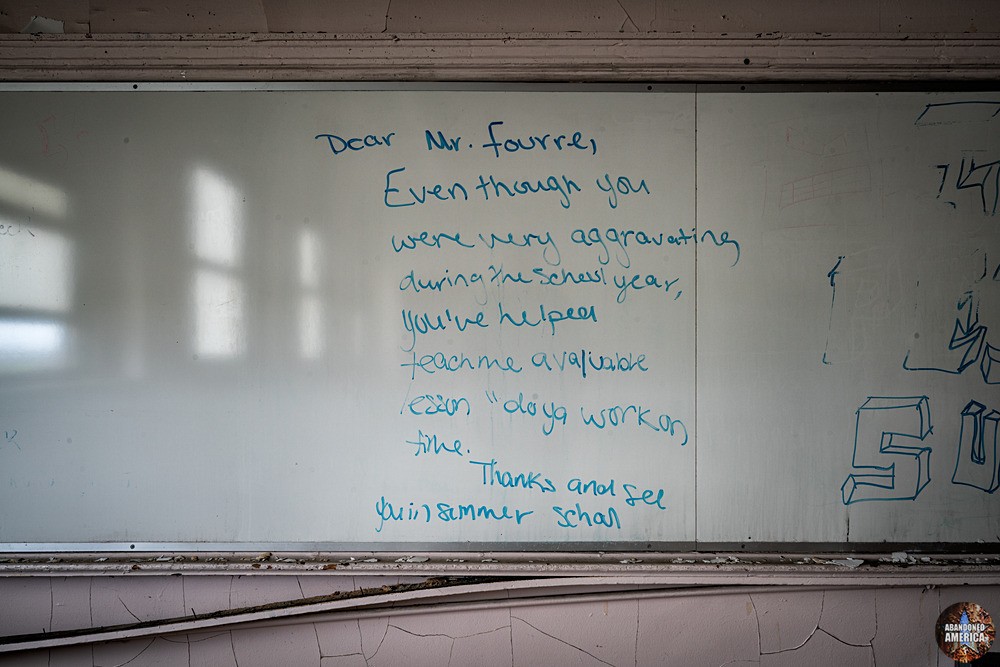 Dear Mr. Fourre,
Even though you
were very aggravating
during the School year,
you've helped
teach me a valuable
lesson "do ya work on
time.
Thanks and see
you in summer school
SU
ABANDONED
AMERICA